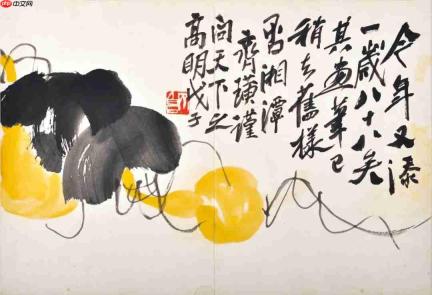 今年又添
一歲八十八矣
其畫筆已
稍去舊樣
否湘潭
齊璜謹
問天下之
高明戊子
中文网